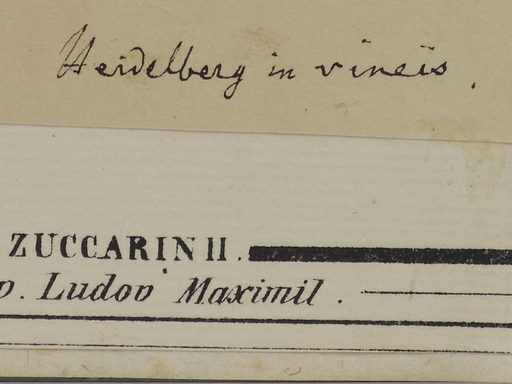 Heidelberg in vineis.
ZUCCARINII.
p. Ludov Maximil.